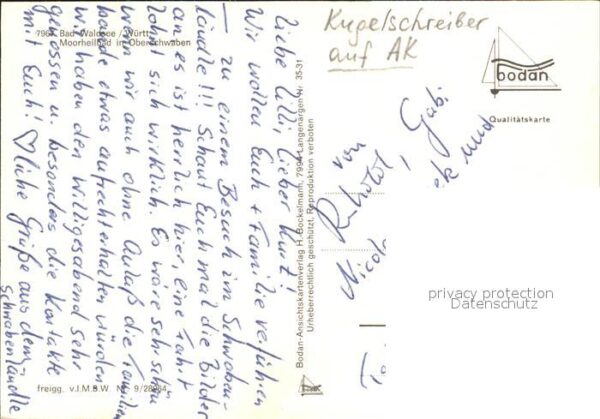 7967 Bad Waldsee / Württ.
Moorheilbad in Oberschwaben
Kugelschreiber
auf AK
bodan
Qualitätskarte
Liebe Lilli, lieber Kurt!
Wir wollen Euch + Familie verführen
– zu einem Besuch im Schwaben-
ländle!!! Schaut Euch mal die Bilder
an, es ist herrlich hier, eine Fahrt
lohnt sich wirklich. Es wäre sehr schön
wenn wir auch ohne Anlaß die Familien
bande etwas aufrechterhalten würden
wir haben den sehr
genossen u. besonders die Kontakte
mit Euch! ♡liche Grüße aus dem
Schwabenländle
von
Gabi
und
Nicola
Bodan-Ansichtskartenverlag H. Bockelmann, 7994 Langenargen Nr. 35-31
Urheberrechtlich geschützt, Reproduktion verboten
freigg. v.I.M.B.W. Nr. 9/
privacy protection
Datenschutz